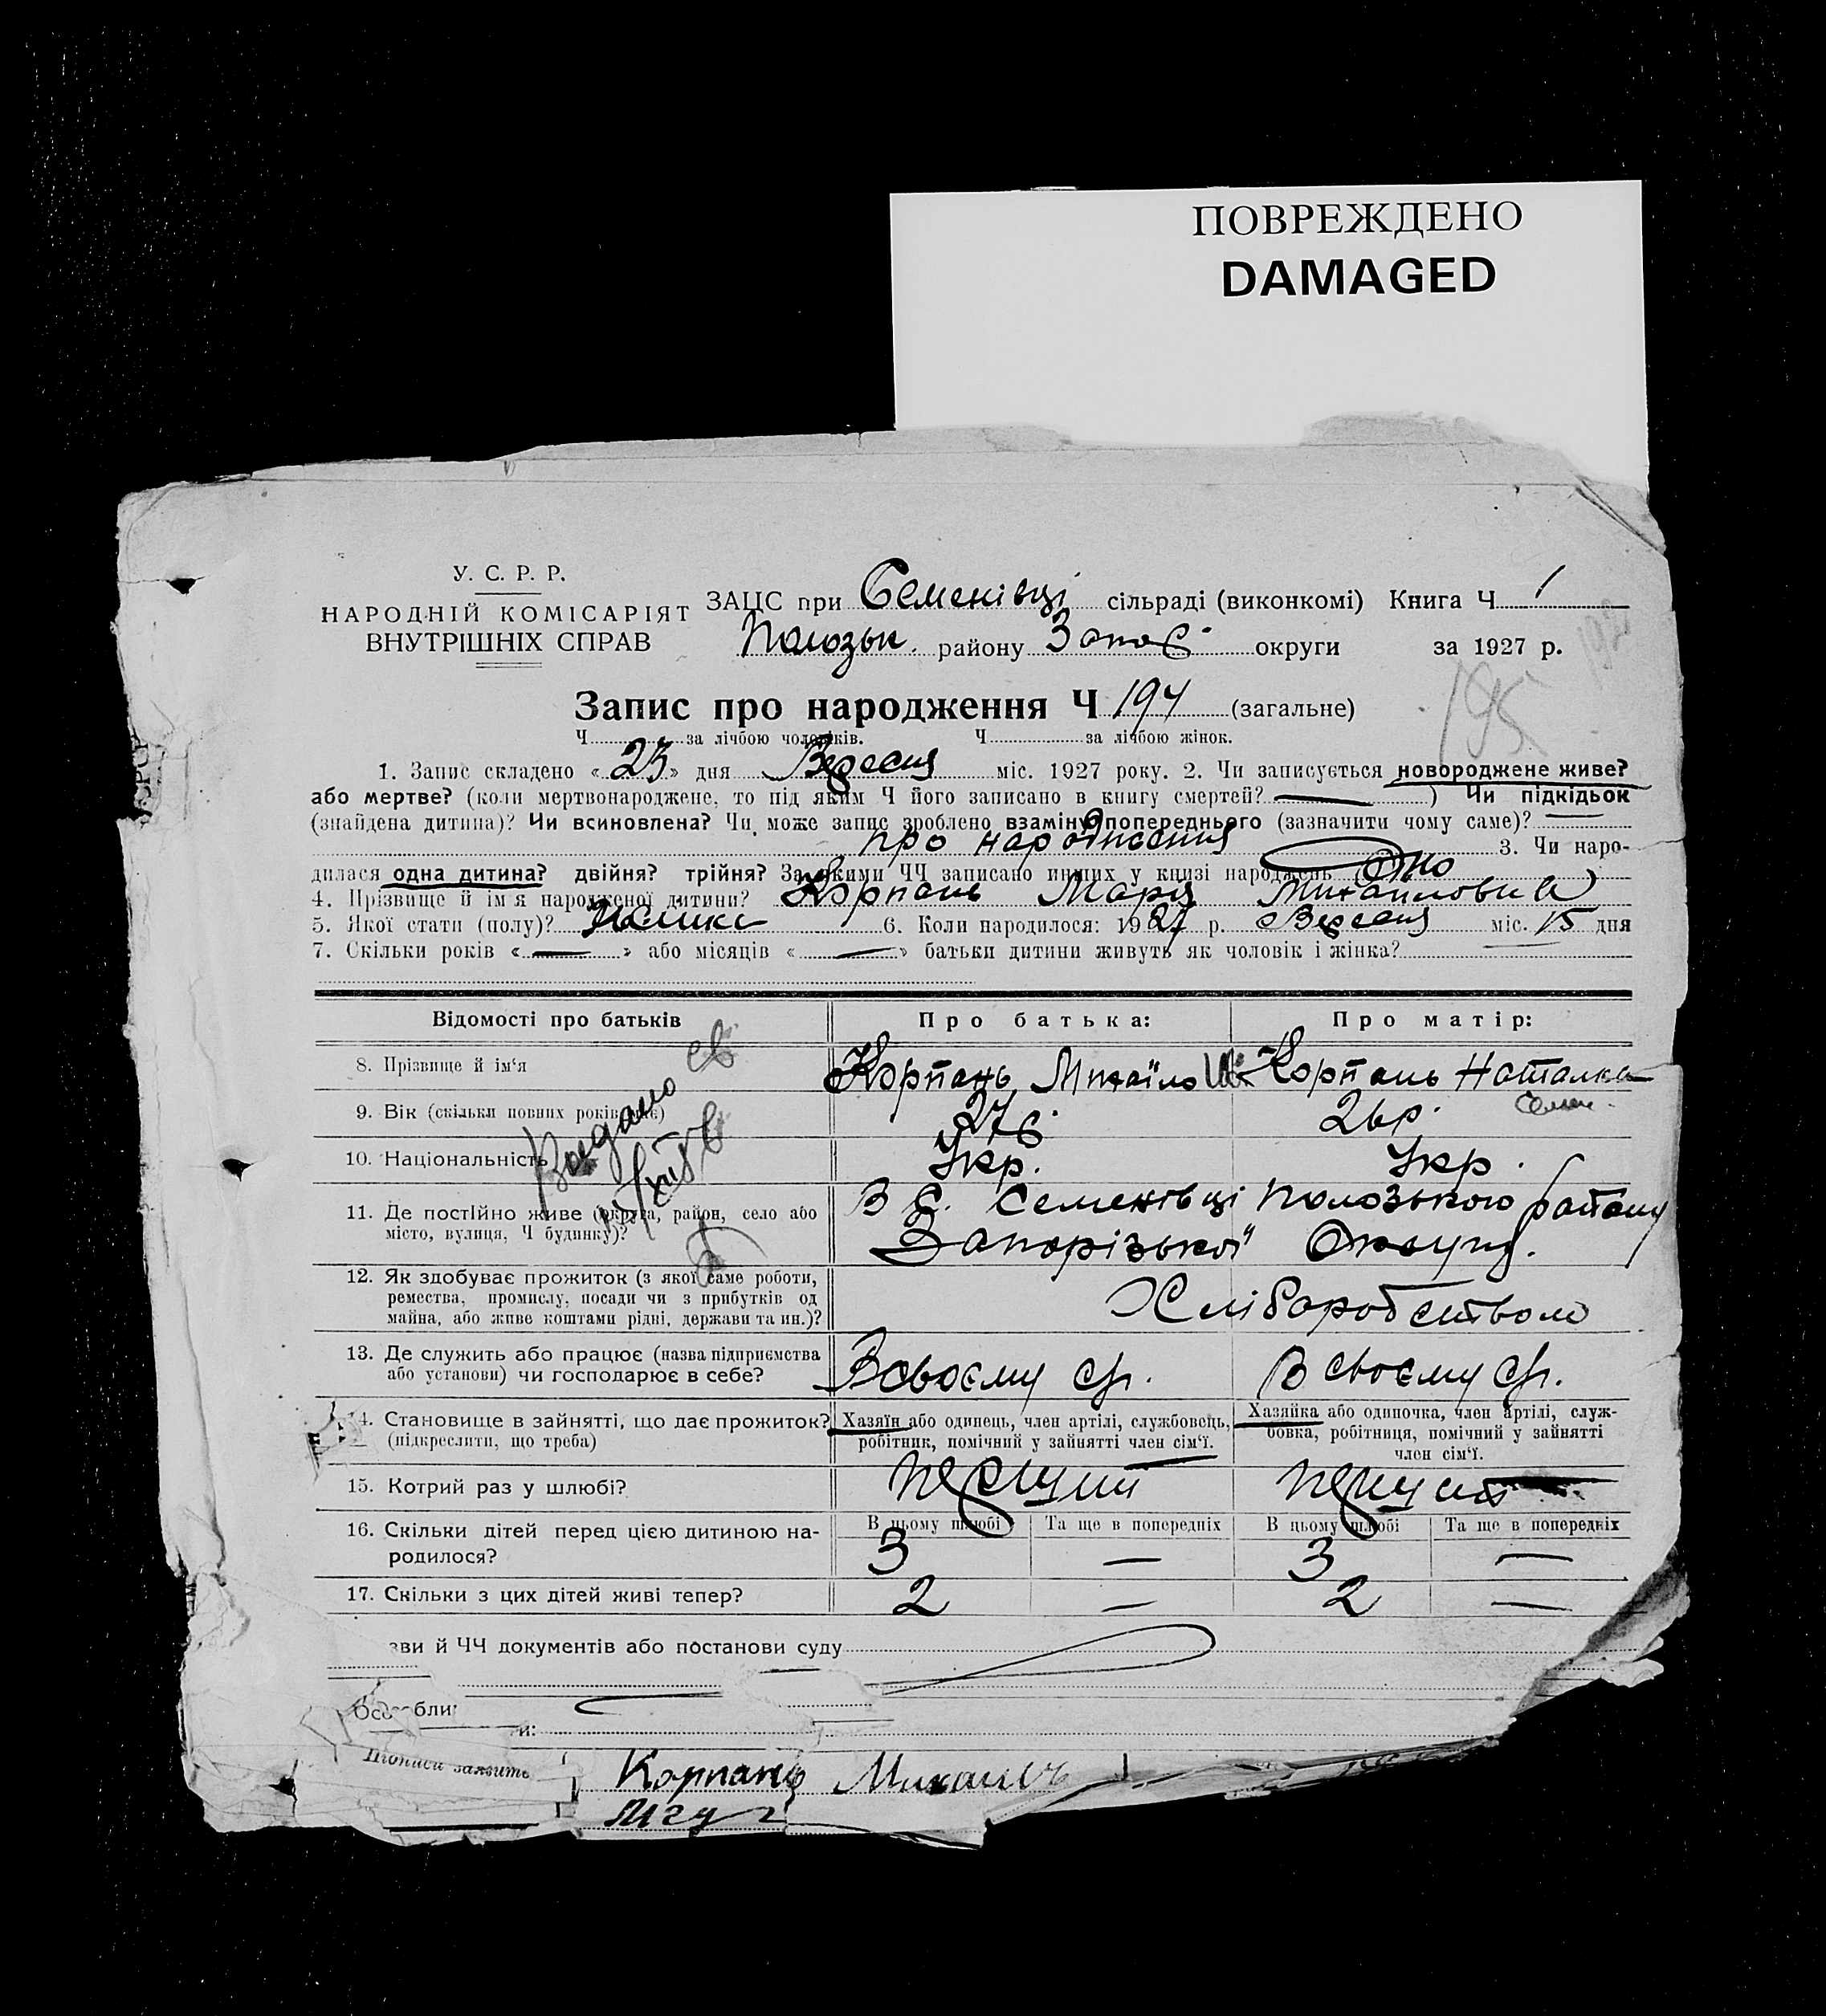 ПОВРЕЖДЕНО
DAMAGED
У. С. Р. Р.
НАРОДНІЙ КОМІСАРІЯТ
ВНУТРІШНІХ СПРАВ
ЗАЦС при Семенівці сільраді (виконкомі) Книга Ч 1
Полозьк. району Запоріз. округи за 1927 р.
Запис про народження Ч 194 (загальне)
195
Ч за лічбою чоловіків. Ч за лічбою жінок.
1. Запис складено « 23 » дня Вересня міс. 1927 року. 2. Чи записується новороджене живе?
або мертве? (коли мертвонароджене, то під яким Ч його записано в книгу смертей? — ) Чи підкідьок
(знайдена дитина)? Чи всиновлена? Чи може запис зроблено взаміну попереднього (зазначити чому саме)? —
про народження 3. Чи наро-
дилася одна дитина? двійня? трійня? За якими ЧЧ записано инших у книзі народжень
4. Прізвище й ім'я народженої дитини? Корпань Марія Михайловна
5. Якої стати (полу)? 6. Коли народилося: 1927 р. Вересня міс. 15 дня
7. Скільки років « — » або місяців « — » батьки дитини живуть як чоловік і жінка?
Відомості про батьків Про батька: Про матір:
8. Прізвище й ім'я Корпань Михаіло Корпань Наталка
Семен.
9. Вік (скільки повних років має) 27р. 26р.
10. Національність Укр. Укр.
11. Де постійно живе (округа, район, село або
місто, вулиця, Ч будинку)?
В с. Семенівці Полозького району
Запорізької Округи.
12. Як здобуває прожиток (з якої саме роботи,
ремества, промислу, посади чи з прибутків од
майна, або живе коштами рідні, держави та ин.)?
Хліборобством
13. Де служить або працює (назва підприємства
або установи) чи господарює в себе?
В своєму г. В своєму г.
14. Становище в зайнятті, що дає прожиток?
(підкреслити, що треба)
Хазяїн або одинець, член артілі, службовець,
робітник, помічний у зайнятті член сім'ї.
Хазяйка або одиночка, член артілі, служ-
бовка, робітниця, помічний у зайнятті
член сім'ї.
15. Котрий раз у шлюбі? перший перший
16. Скільки дітей перед цією дитиною на-
родилося?
В цьому шлюбі Та ще в попередніх В цьому шлюбі Та ще в попередніх
3 — 3 —
17. Скільки з цих дітей живі тепер? 2 — 2 —
зви й ЧЧ документів або постанови суду
Особли
и:
Підписи заявите
Корпань Михаилъ